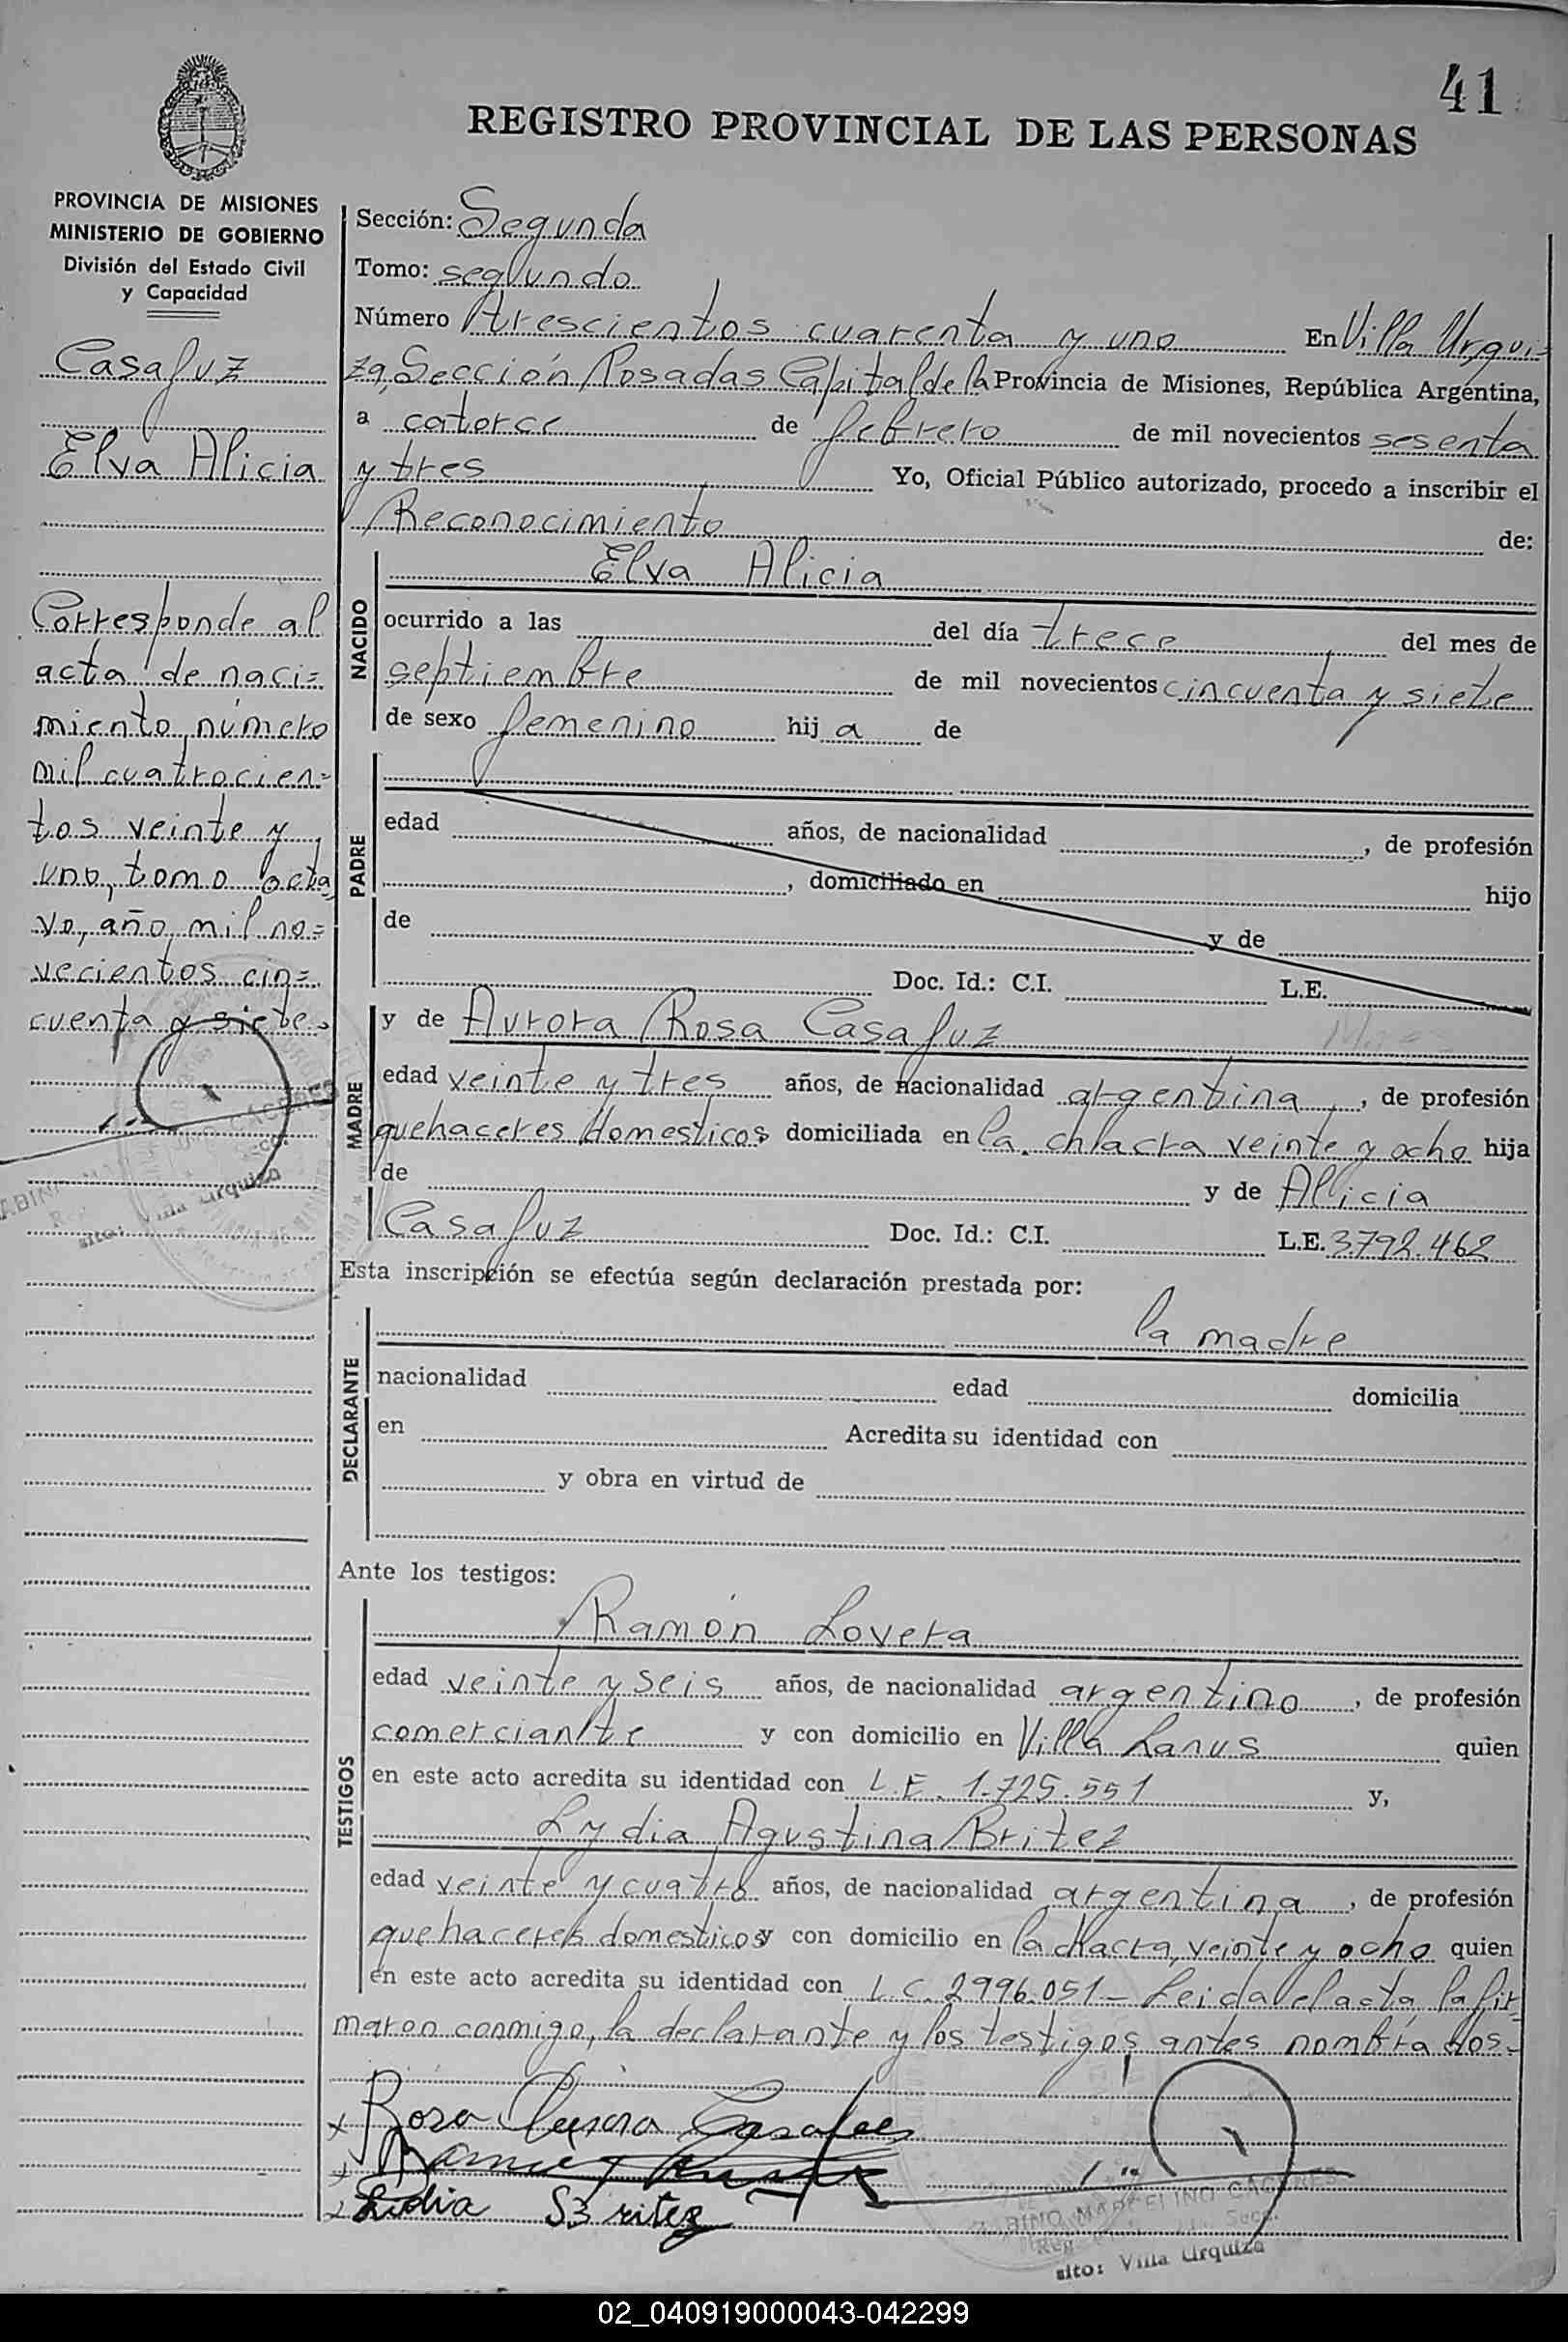 41
REGISTRO PROVINCIAL DE LAS PERSONAS
PROVINCIA DE MISIONES
MINISTERIO DE GOBIERNO
División del Estado Civil
y Capacidad
Casafuz
Elva Alicia
Corresponde al
acta de naci=
miento número
mil cuatrocien=
tos veinte y
uno, tomo octa
vo, año mil no=
vecientos cin=
cuenta y siete.
Sección: Segunda
Tomo: segundo
Número trescientos cuarenta y uno En Villa Urqui=
za, Sección Posadas Capital de la Provincia de Misiones, República Argentina,
a catorce de febrero de mil novecientos sesenta
y tres Yo, Oficial Público autorizado, procedo a inscribir el
Reconocimiento de:
NACIDO
Elva Alicia
ocurrido a las del día trece del mes de
septiembre de mil novecientos cincuenta y siete
de sexo femenino hij a de
PADRE
edad años, de nacionalidad , de profesión
, domiciliado en hijo
de y de
Doc. Id.: C.I. L.E.
MADRE
y de Aurora Rosa Casafuz
edad veinte y tres años, de nacionalidad argentina, de profesión
quehaceres domesticos domiciliada en la chacra veinte y ocho hija
de y de Alicia
Casafuz Doc. Id.: C.I. L.E. 3792.462
Esta inscripción se efectúa según declaración prestada por:
DECLARANTE
la madre
nacionalidad edad domicilia
en Acredita su identidad con
y obra en virtud de
Ante los testigos:
TESTIGOS
Ramón Lovera
edad veinte y seis años, de nacionalidad argentino, de profesión
comerciante y con domicilio en Villa Lanus quien
en este acto acredita su identidad con L.E. 1.725.551 y,
Lydia Agustina Britez
edad veinte y cuatro años, de nacionalidad argentina, de profesión
quehaceres domesticos y con domicilio en la chacra veinte y ocho quien
en este acto acredita su identidad con L.C. 2996.051- Leida el acta la fir
maron conmigo, la declarante y los testigos antes nombrados.-
Rosa Aurora Casafus
Lidia Britez
MARCELINO CACERES
Villa Urquiza
02_040919000043-042299